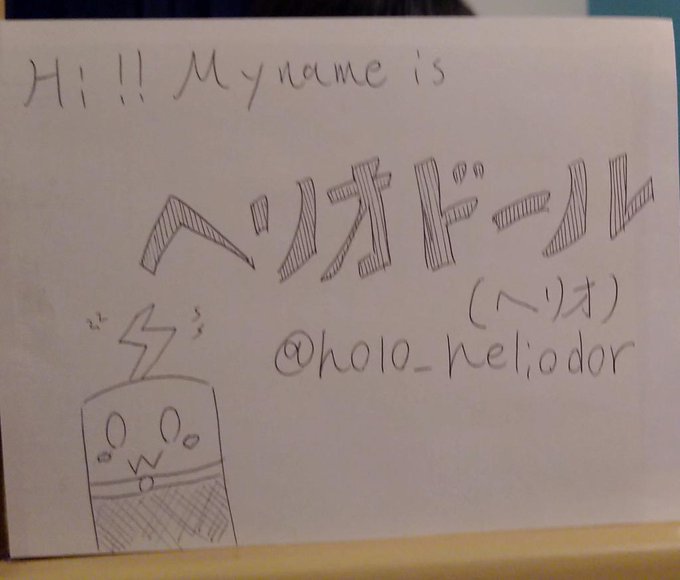 Hi!! My name is
ヘリオドール
(ヘリオ)
@holo_heliodor